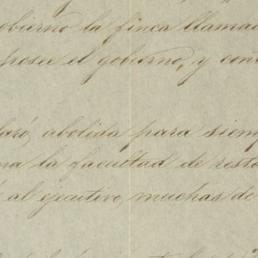 obierno la finca llamad
posee el gobierno, y con
aró, abolida para siemp
na la facultad de resta
al ejecutivo, muchas de